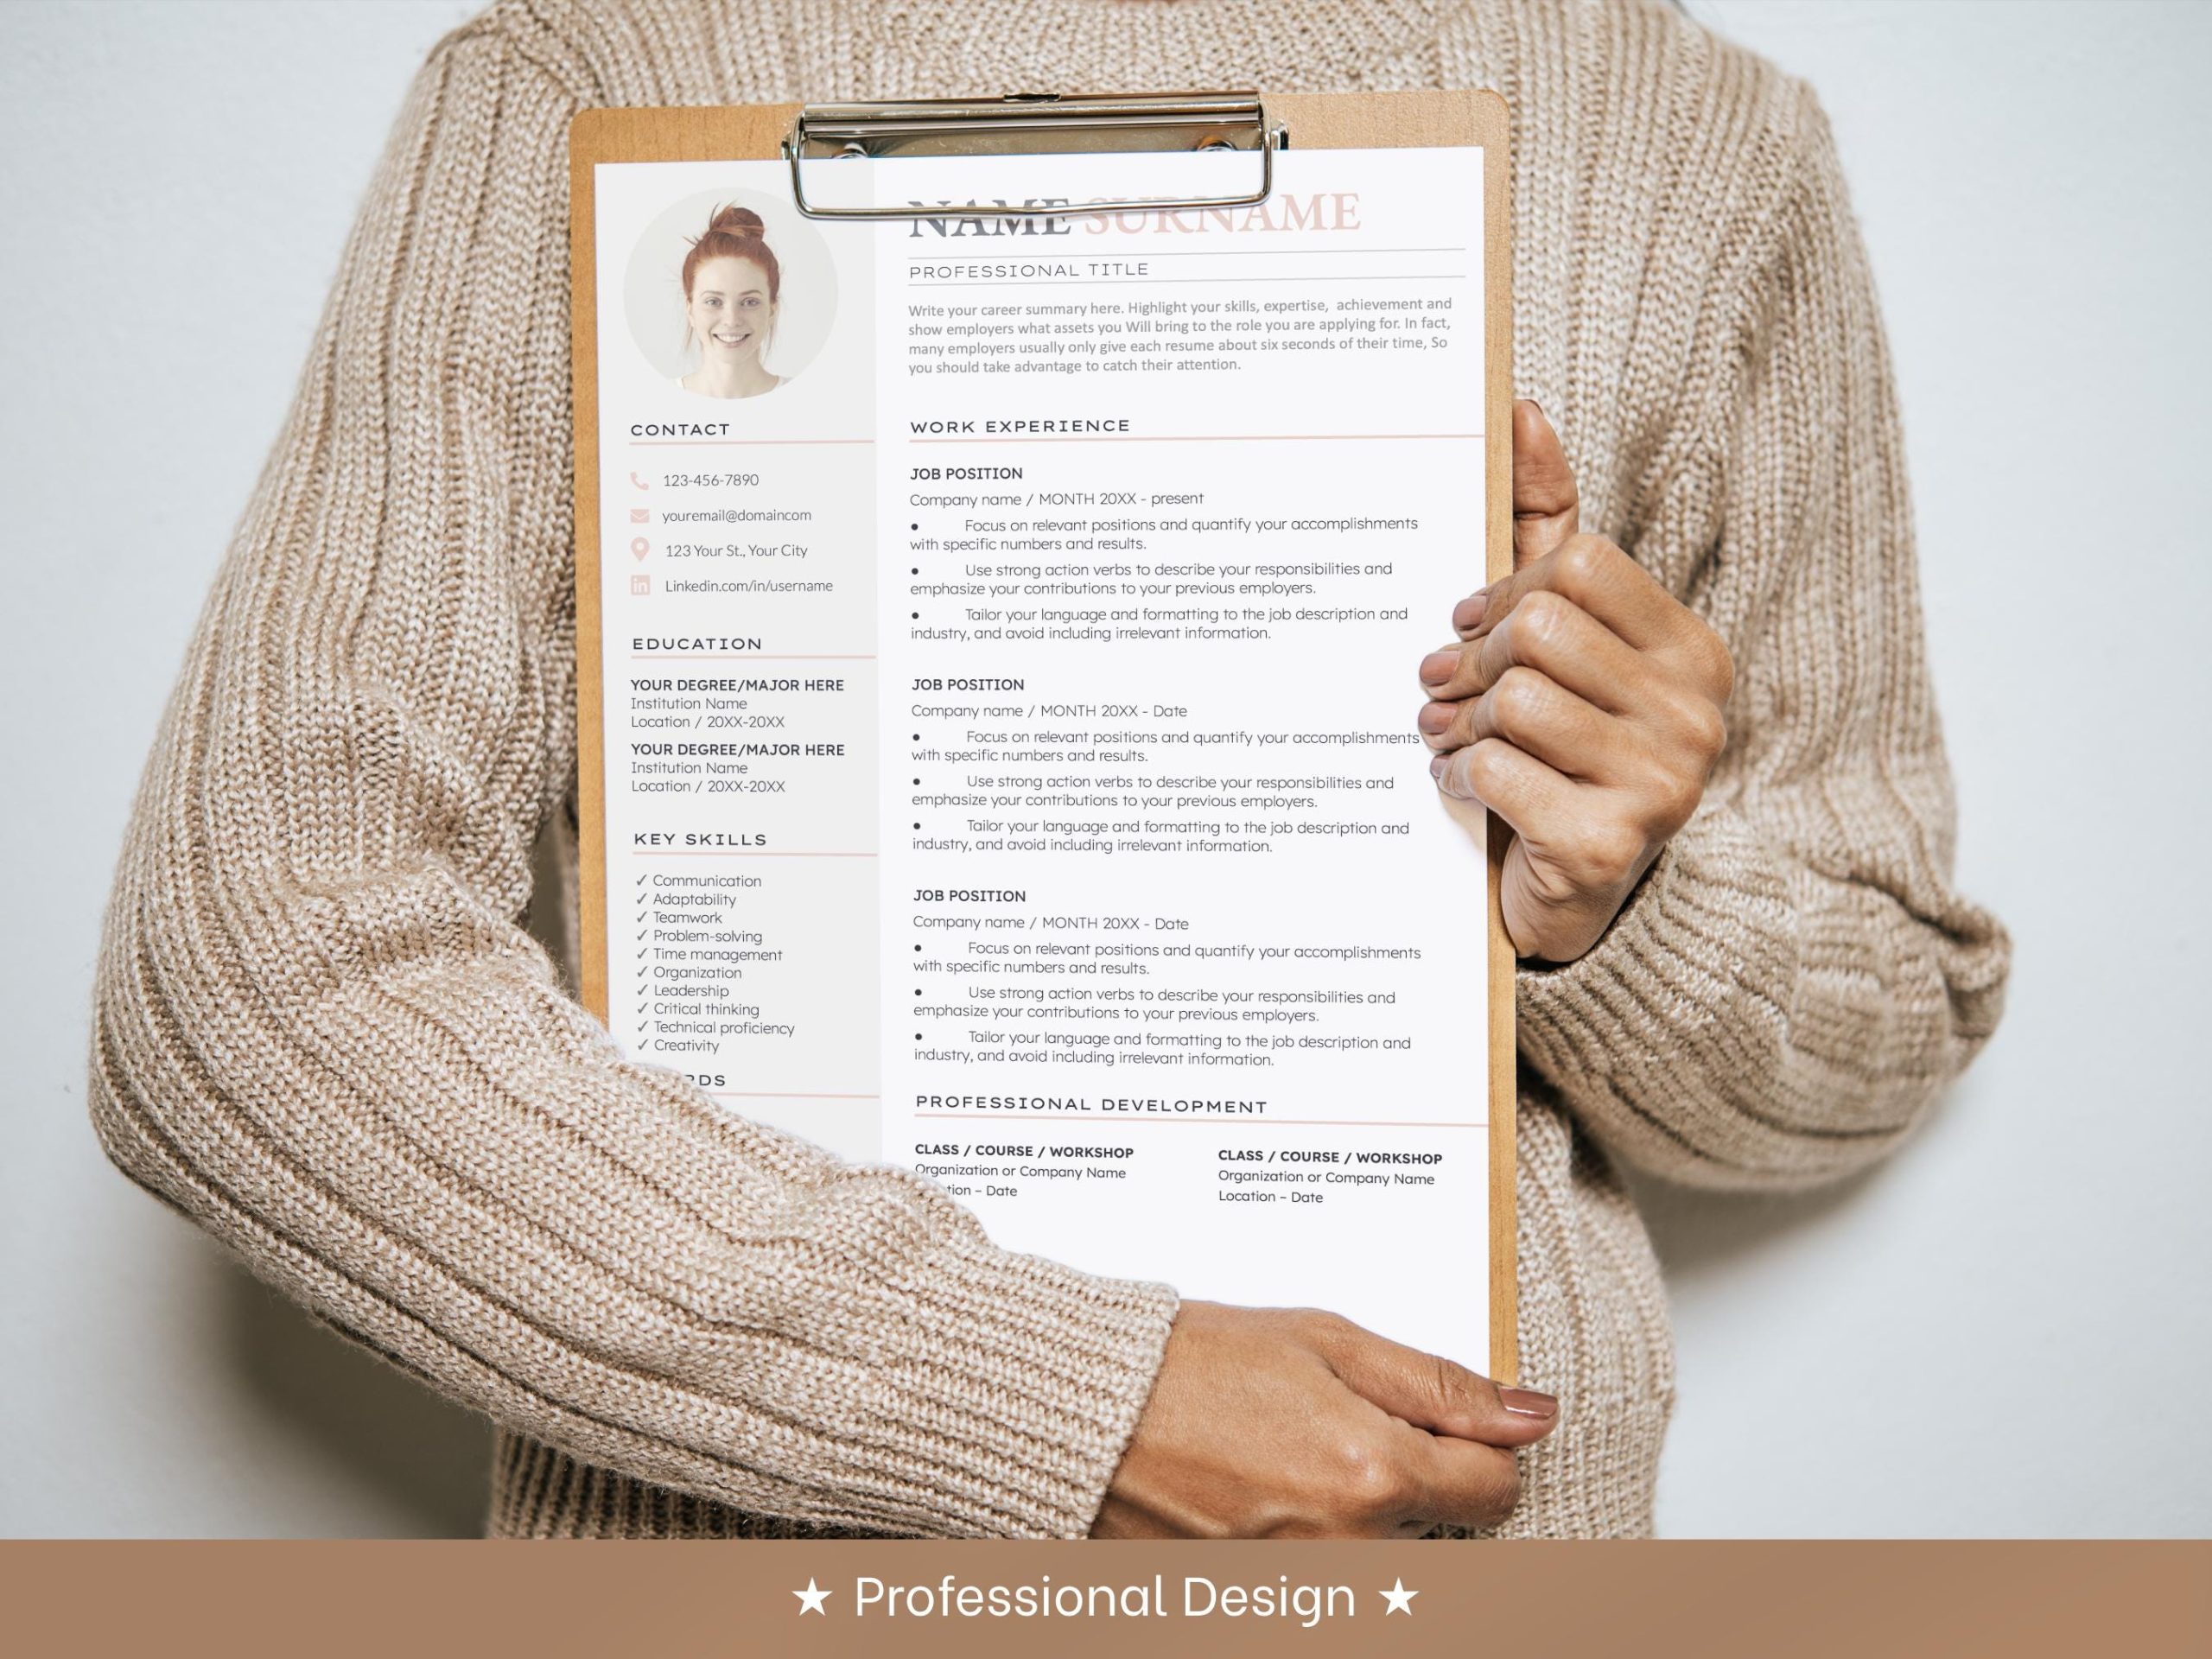 NAME SURNAME
PROFESSIONAL TITLE
Write your career summary here. Highlight your skills, expertise, achievement and
show employers what assets you Will bring to the role you are applying for. In fact,
many employers usually only give each resume about six seconds of their time, So
you should take advantage to catch their attention.
CONTACT
123-456-7890
youremail@domaincom
123 Your St., Your City
in Linkedin.com/in/username
EDUCATION
YOUR DEGREE/MAJOR HERE
Institution Name
Location / 20XX-20XX
YOUR DEGREE/MAJOR HERE
Institution Name
Location / 20XX-20XX
KEY SKILLS
✓ Communication
✓ Adaptability
✓ Teamwork
✓ Problem-solving
✓ Time management
✓ Organization
✓ Leadership
✓ Critical thinking
✓ Technical proficiency
✓ Creativity
WORK EXPERIENCE
JOB POSITION
Company name / MONTH 20XX - present
• Focus on relevant positions and quantify your accomplishments
with specific numbers and results.
• Use strong action verbs to describe your responsibilities and
emphasize your contributions to your previous employers.
• Tailor your language and formatting to the job description and
industry, and avoid including irrelevant information.
JOB POSITION
Company name / MONTH 20XX - Date
• Focus on relevant positions and quantify your accomplishments
with specific numbers and results.
• Use strong action verbs to describe your responsibilities and
emphasize your contributions to your previous employers.
• Tailor your language and formatting to the job description and
industry, and avoid including irrelevant information.
JOB POSITION
Company name / MONTH 20XX - Date
• Focus on relevant positions and quantify your accomplishments
with specific numbers and results.
• Use strong action verbs to describe your responsibilities and
emphasize your contributions to your previous employers.
• Tailor your language and formatting to the job description and
industry, and avoid including irrelevant information.
PROFESSIONAL DEVELOPMENT
CLASS / COURSE / WORKSHOP
Organization or Company Name
– Date
CLASS / COURSE / WORKSHOP
Organization or Company Name
Location – Date
★ Professional Design ★